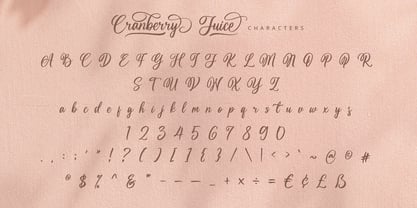 Cranberry Juice CHARACTERS
A B C D E F G H I J K L M N O P Q R
S T U V W X Y Z
a b c d e f g h i j k l m n o p q r s t u v w x y z
1 2 3 4 5 6 7 8 9 0
. , : ; ' " ! ? ( ) [ ] { } / \ | < > ` ~ @ © #
® $ % ^ & * - – — _ + × ÷ = € ¢ £ ß